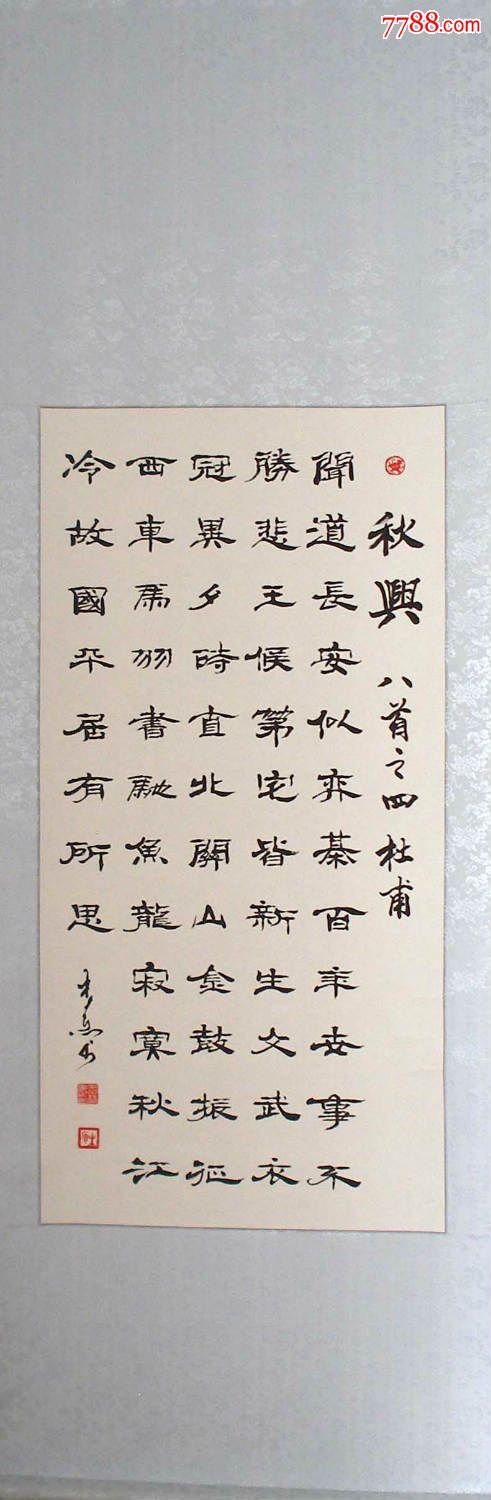 7788.com
秋興 八首之四 杜甫
聞道長安似弈棊百年世事不
勝悲王候第宅皆新生文武衣
冠異夕時直北關山金鼓振征
西車馬羽書馳魚龍寂寞秋江
冷故國平居有所思